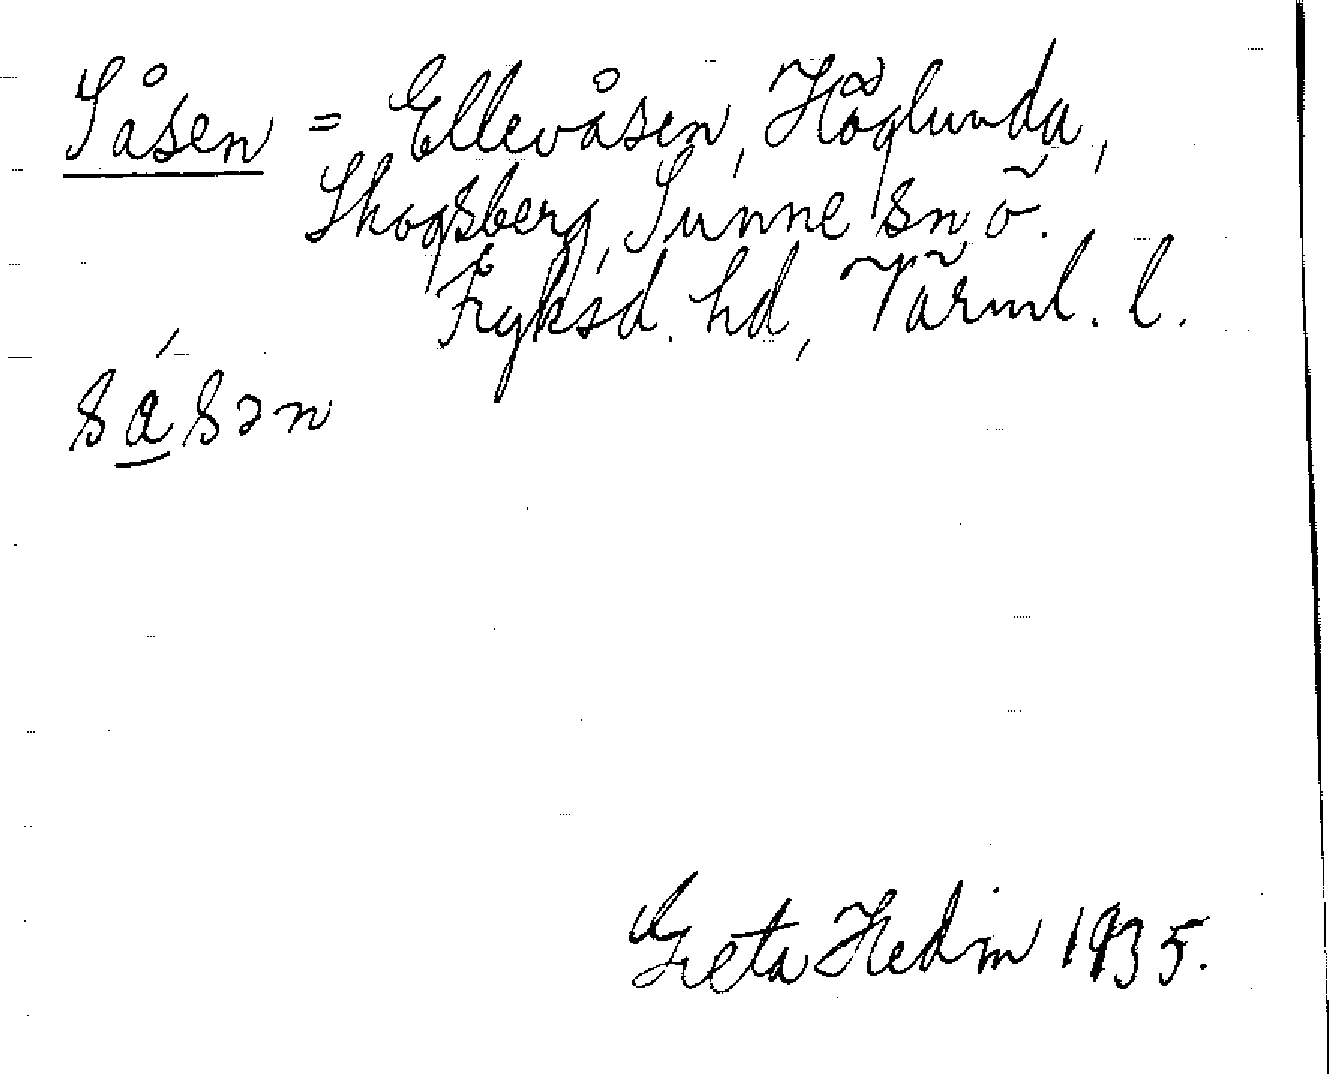 Såsen = Ellevåsen, Höglunda,
Skogsberg, Sunne sn o.
Fryksd. hd, Värml. l.
sásən
Greta Hedin 1935.